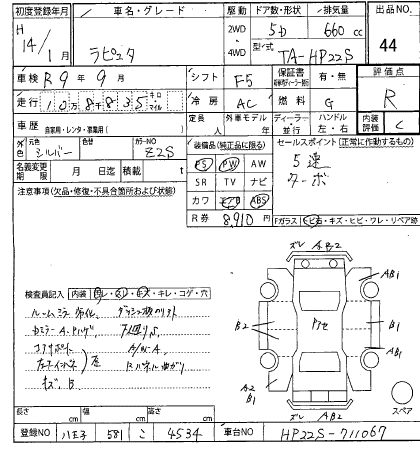 初度登録年月 車名・グレード 駆動 ドア数・形状 排気量 出品NO.
H 14/1月 ラピュタ 2WD・4WD 5D 660cc 44
型式 TA-HP22S
車検 R9年9月 シフト F5 保証書 有・無 評価点 R
走行 108835 キロ・マイル 冷房 AC 燃料 G 内装評価 C
車歴 自家用・レンタ・事業用( ) 定員 人 外車モデル 年 ディーラー・並行 ハンドル 左・右
外色 元色 シルバー 色替 カラーNO Z2S 装備品(純正品に限る) セールスポイント(正常に動作するもの)
PS PW AW 5速
名義変更期限 月 日迄 積載 t SR TV ナビ ターボ
注意事項(欠品・修復・不具合箇所および状態) カワ エアB ABS
R券 8,910円 Fガラス トビ石・キズ・ヒビ・ワレ・リペア跡
ズレ AB2
AB1
検査員記入 内装 キレ・コゲ・穴
ルームミラ劣化
下廻りS
コアサポート
キズ、B
B2 B1
A2 B1 AB1
ズレ AB2
スペア
長さ cm 幅 cm 高さ cm
登録NO 八王子 581 こ 4534 車台NO HP22S-711067